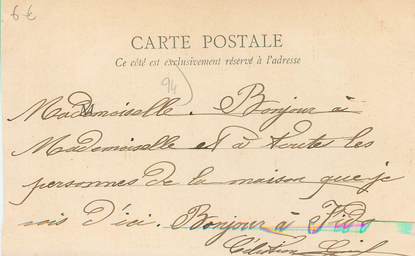 6 €
CARTE POSTALE
Ce côté est exclusivement réservé à l'adresse
94
Mademoiselle. Bonjour à
Mademoiselle et à toutes les
personnes de la maison que je
vois d'ici. Bonjour à Fido